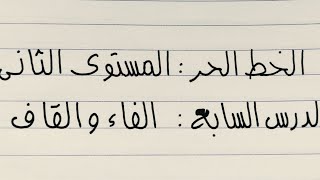 الخط الحر : المستوى الثانى
لدرس السابع : الفاء والقاف